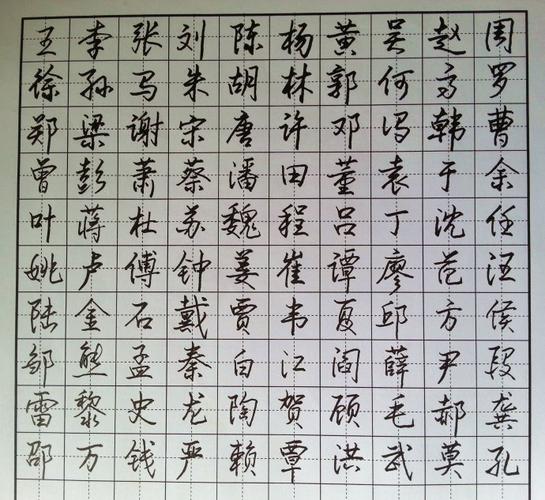 王李张刘陈杨黄吴赵周
徐孙马朱胡林郭何高罗
郑梁谢宋唐许邓冯韩曹
曾彭萧蔡潘田董袁于余
叶蒋杜苏魏程吕丁沈任
姚卢傅钟姜崔谭廖范汪
陆金石戴贾韦夏邱方侯
邹熊孟秦白江阎薛尹段
雷黎史龙陶贺顾毛郝龚
邵万钱严赖覃洪武莫孔